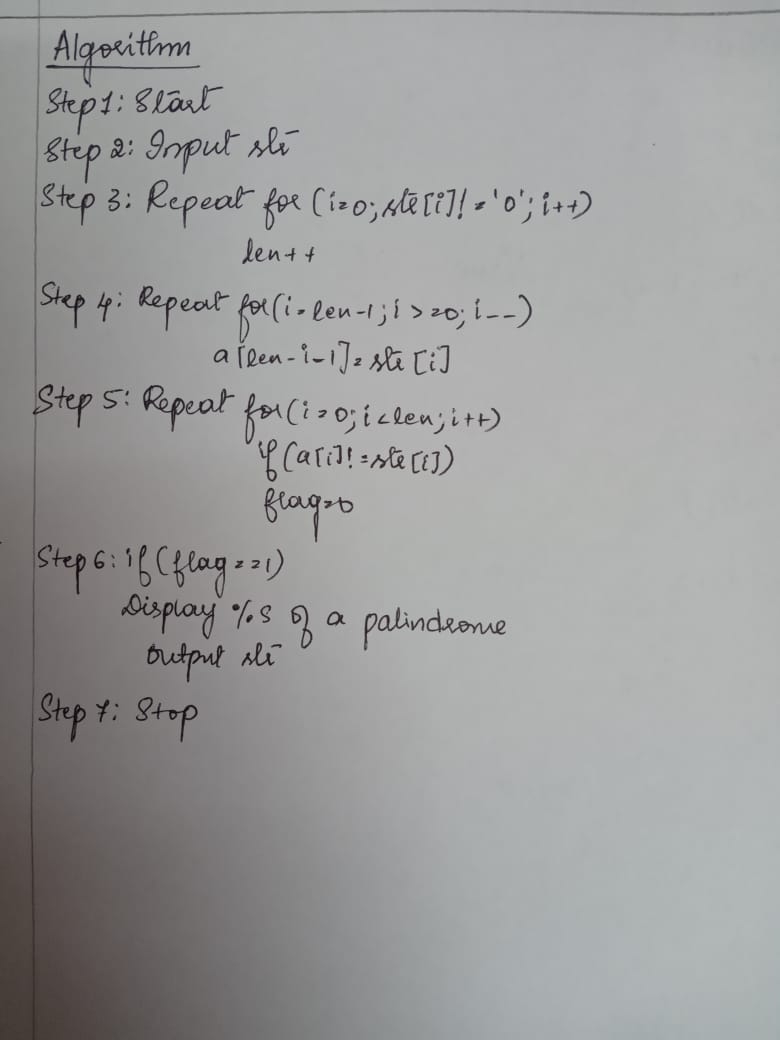 Algorithm
Step 1: Start
Step 2: Input str
Step 3: Repeat for (i=0; str[i]!='0'; i++)
len++
Step 4: Repeat for(i=len-1; i>=0; i--)
a[len-i-1]=str[i]
Step 5: Repeat for(i=0; i<len; i++)
if(a[i]!=str[i])
flag=0
Step 6: if(flag==1)
Display %s of a palindrome
Output str
Step 7: Stop